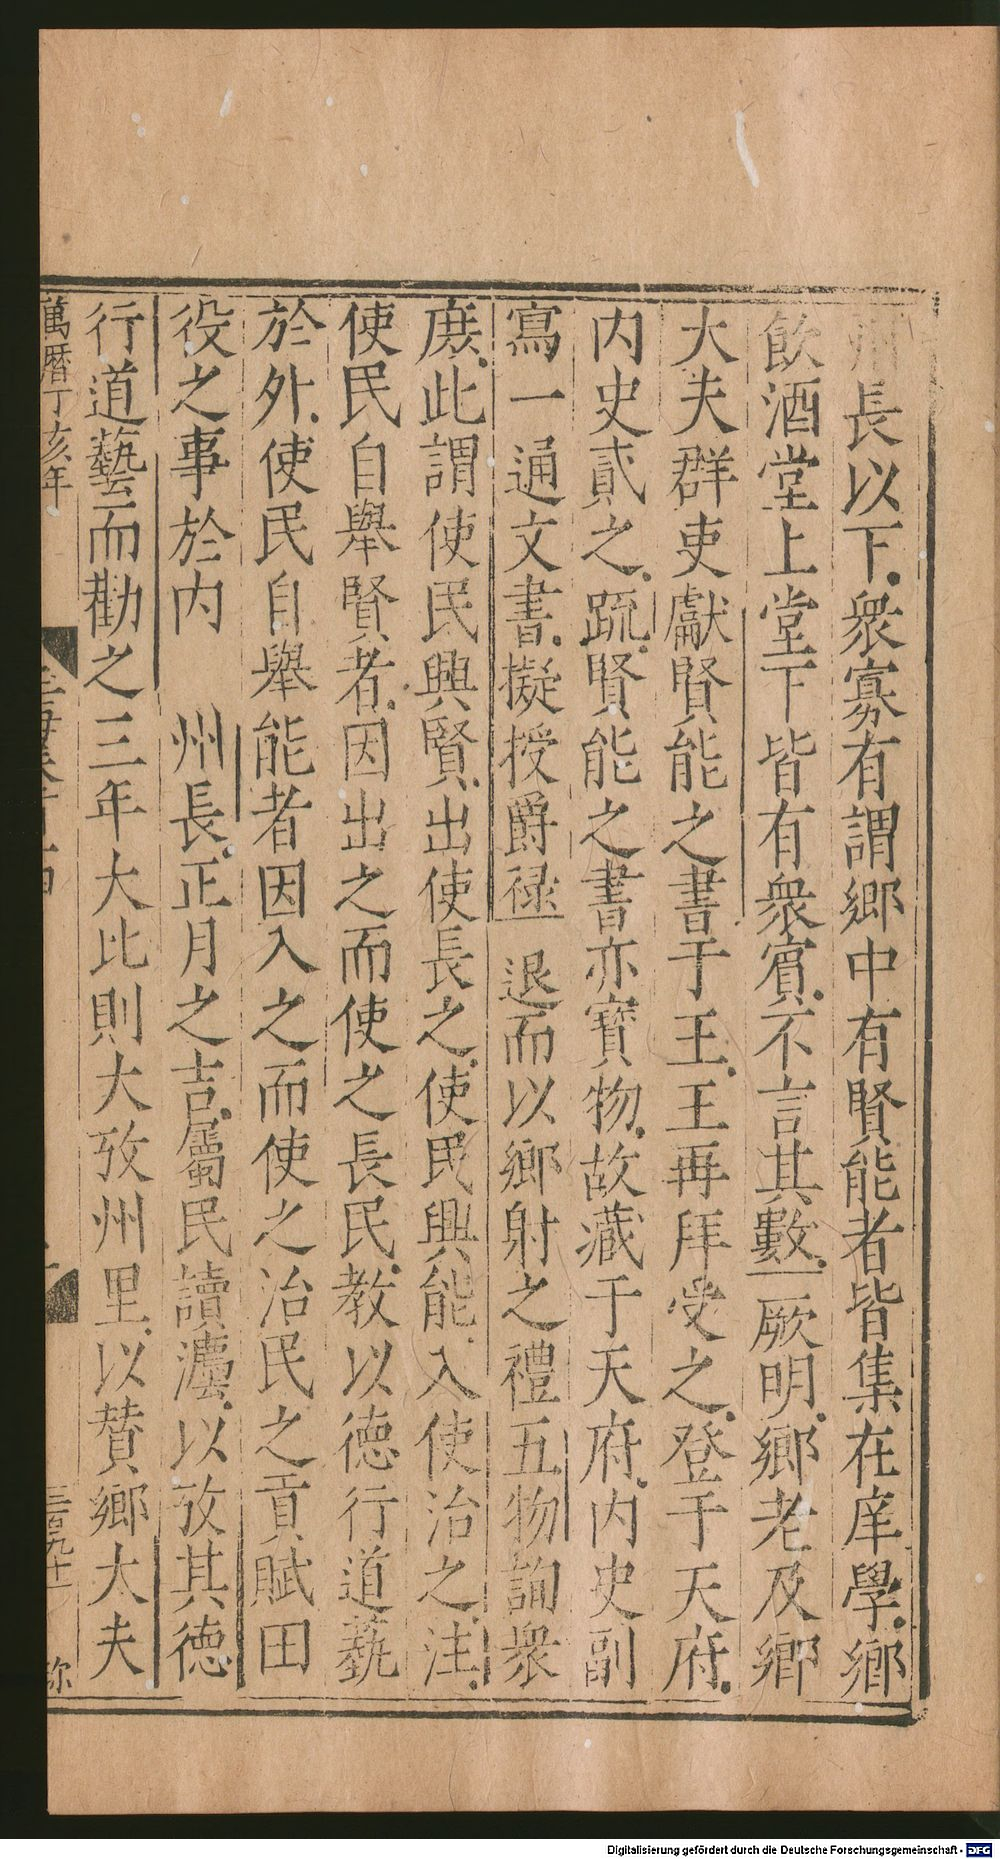 州長以下衆寡有謂鄉中有賢能者皆集在庠學鄉
飲酒堂上堂下皆有衆賓不言其數厥明鄉老及鄉
大夫群吏獻賢能之書于王王再拜受之登于天府
内史貳之疏賢能之書亦寶物故藏于天府内史副
寫一通文書擬授爵祿退而以鄉射之禮五物詢衆
庻此謂使民興賢出使長之使民興能入使治之注
使民自舉賢者因出之而使之長民教以德行道藝
於外使民自舉能者因入之而使之治民之貢賦田
役之事於内 州長正月之吉屬民讀灋以攷其德
行道藝而勸之三年大比則大攷州里以賛鄉大夫
萬曆丁亥年
Digitalisierung gefördert durch die Deutsche Forschungsgemeinschaft - DFG